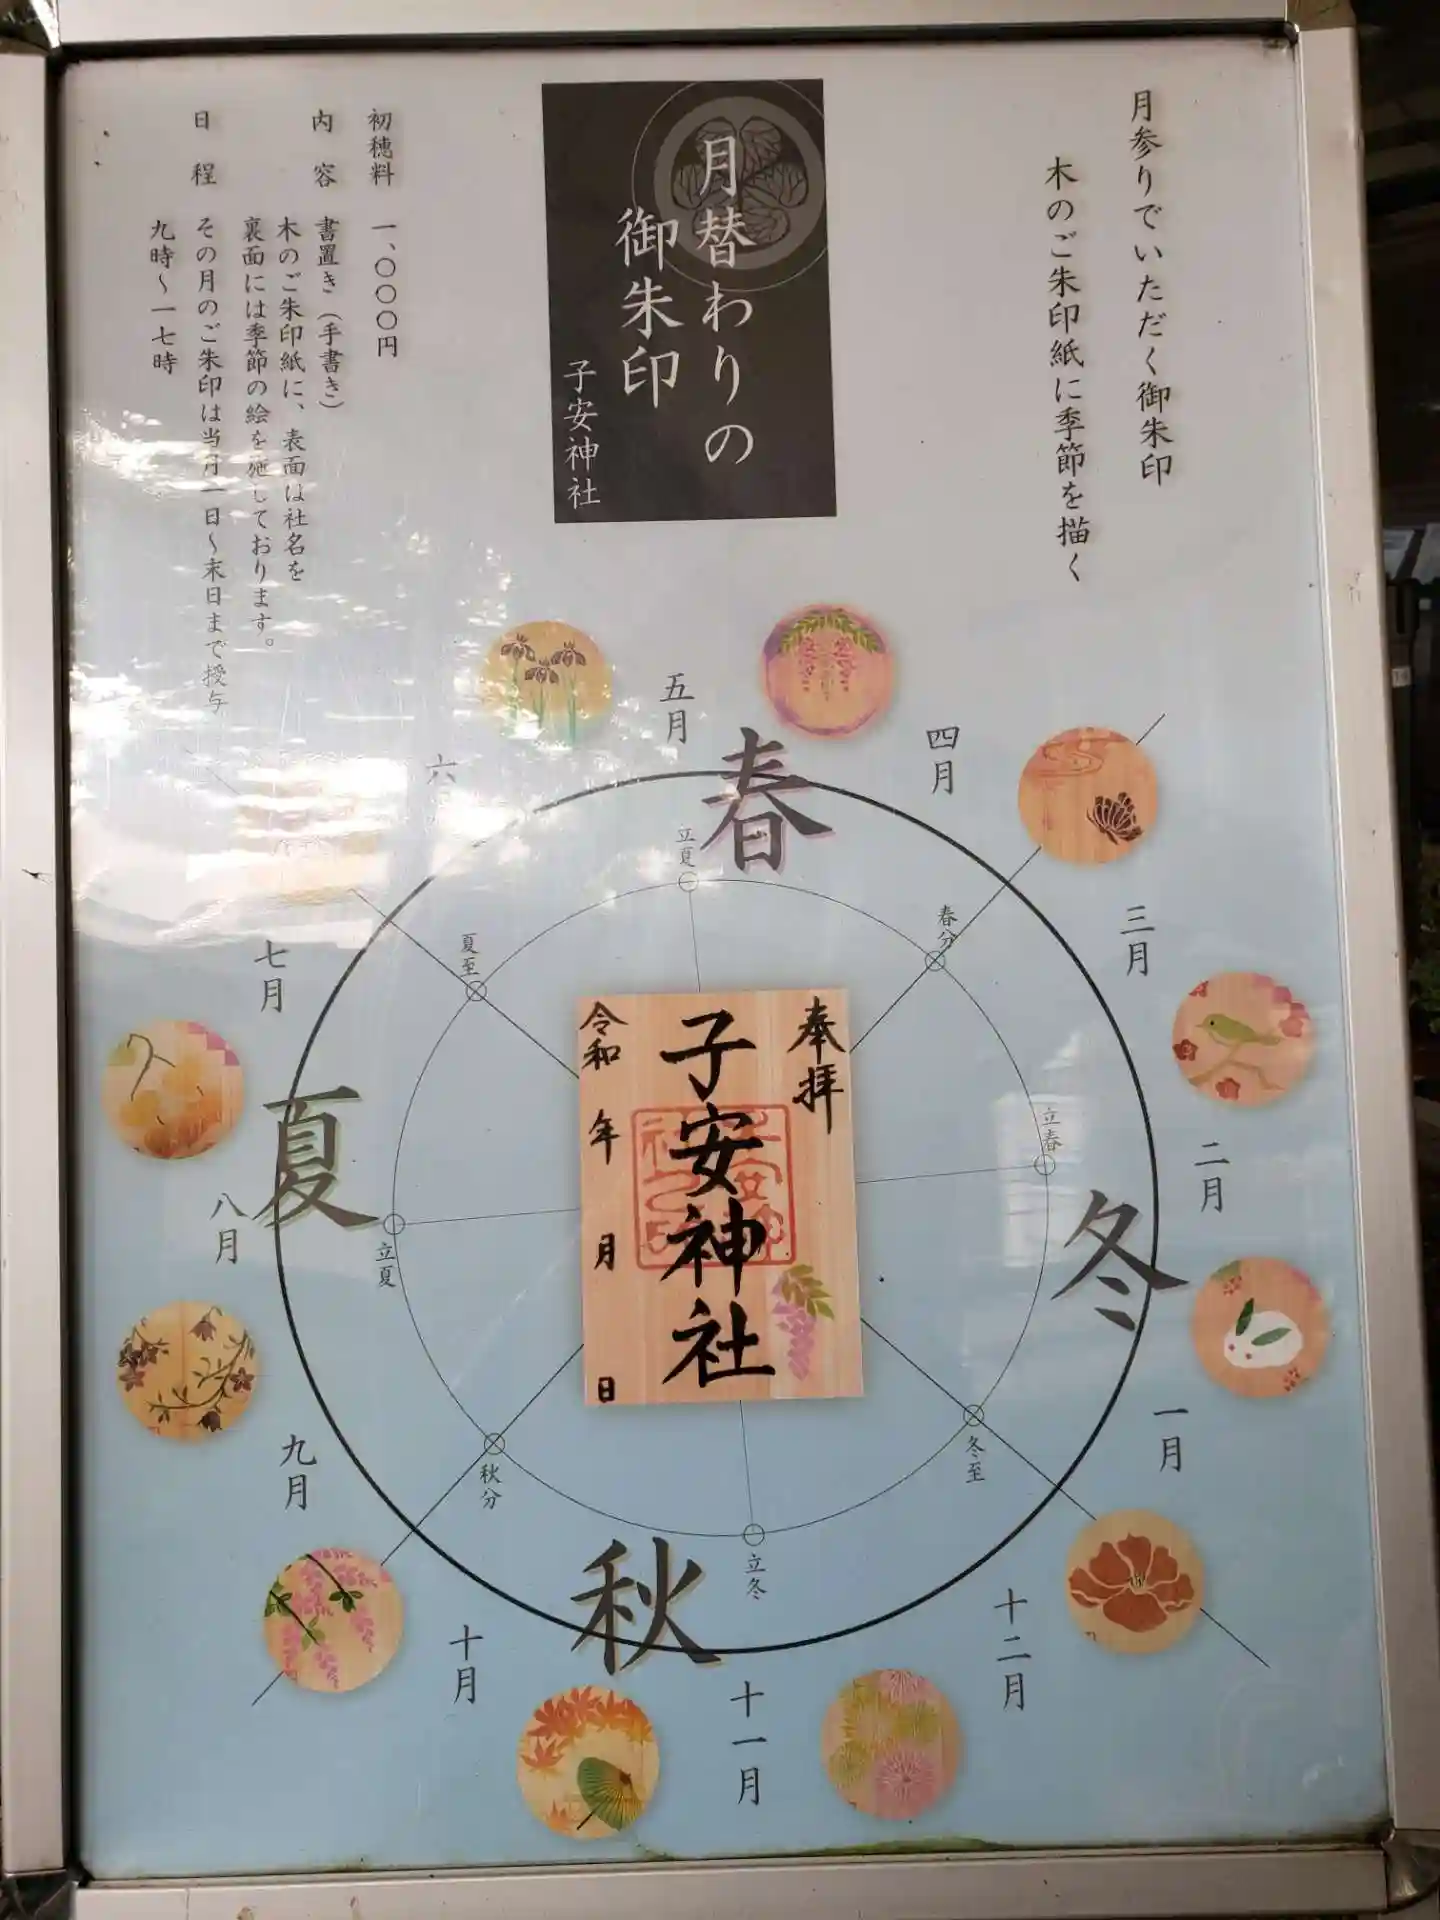 月参りでいただく御朱印
木のご朱印紙に季節を描く
月替わりの
御朱印
子安神社
初穂料 一、〇〇〇円
内容 書置き（手書き）
木のご朱印紙に、表面は社名を
裏面には季節の絵を施しております。
日程 その月のご朱印は当月一日～末日まで授与
九時～一七時
春
夏
秋
冬
五月
四月
三月
二月
一月
十二月
十一月
十月
九月
八月
七月
六
立夏
春分
立春
冬至
立冬
秋分
立夏
夏至
奉拝
子安神社
令和 年 月 日